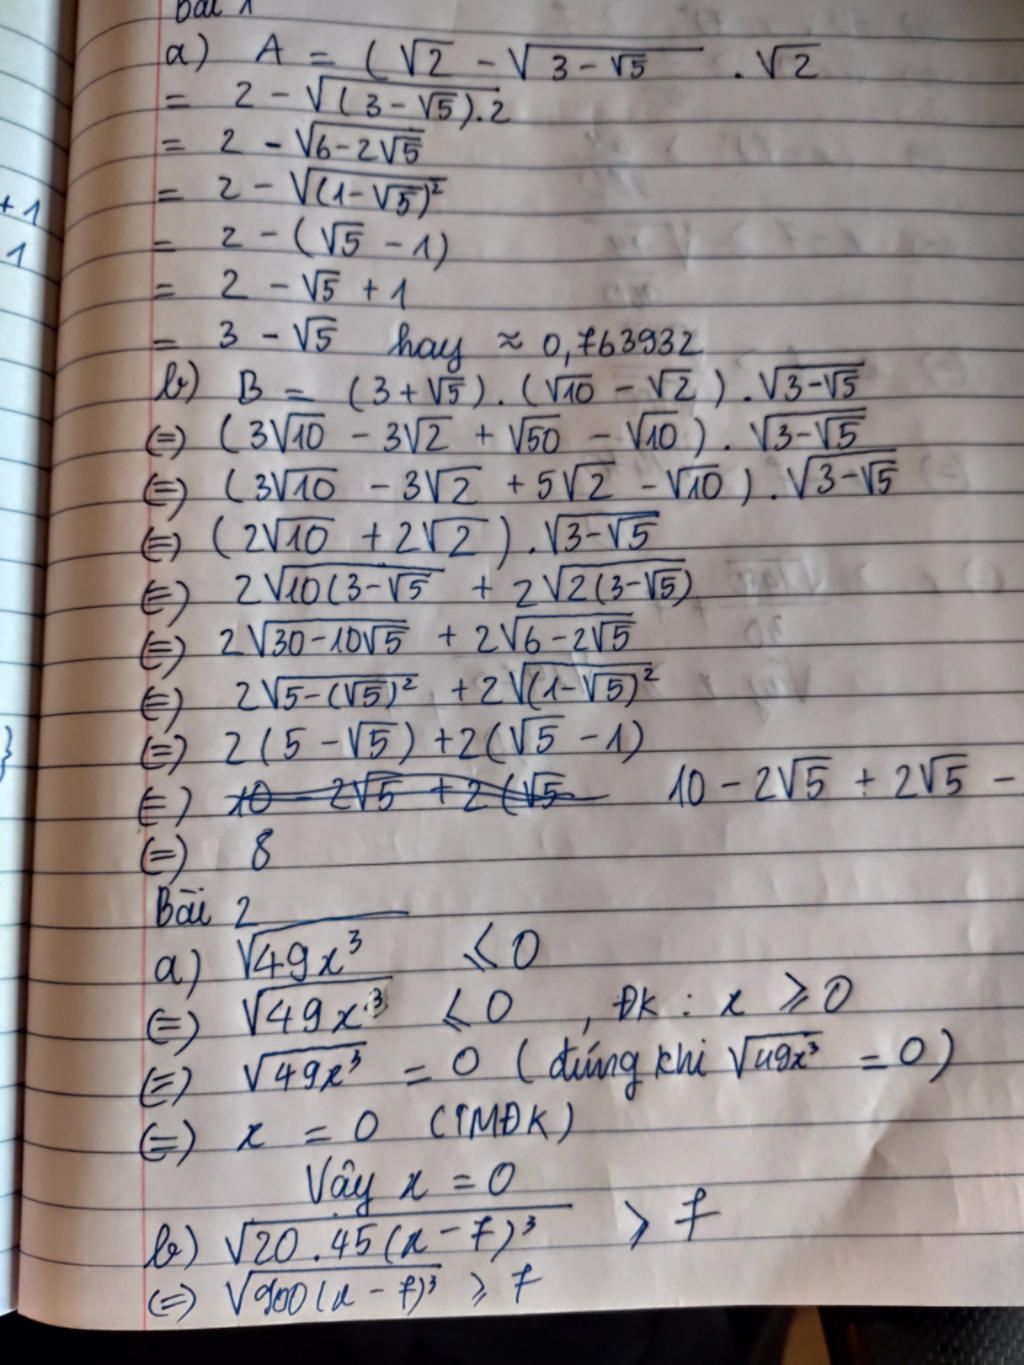 Bài 1
a) A = (√2 - √(3-√5) . √2
= 2 - √((3-√5).2)
= 2 - √(6-2√5)
= 2 - √((1-√5)²)
= 2 - (√5 - 1)
= 2 - √5 + 1
= 3 - √5 hay ≈ 0,763932
b) B = (3+√5).(√10 - √2).√(3-√5)
(=) (3√10 - 3√2 + √50 - √10).√(3-√5)
(=) (3√10 - 3√2 + 5√2 - √10).√(3-√5)
(=) (2√10 + 2√2).√(3-√5)
(=) 2√(10(3-√5) + 2√(2(3-√5))
(=) 2√(30-10√5) + 2√(6-2√5)
(=) 2√(5-(√5)²) + 2√((1-√5)²)
(=) 2(5-√5) + 2(√5-1)
(=) 10 - 2√5 + 2(√5 10 - 2√5 + 2√5 -
(=) 8
Bài 2
a) √(49x³) ≤ 0
(=) √(49x³) ≤ 0 , ĐK : x ≥ 0
(=) √(49x³) = 0 (đúng khi √(49x³) = 0)
(=) x = 0 (TMĐK)
Vây x = 0
b) √(20.45(x-7)³) ≥ 7
(=) √(900(x-7)³) ≥ 7
+ 1
1
}